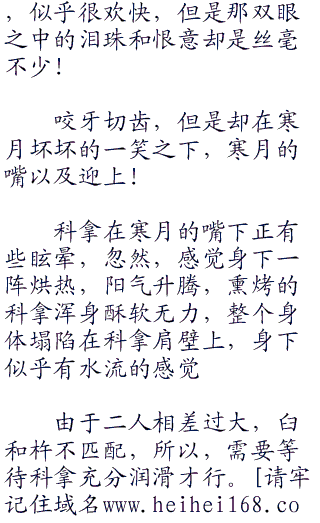 ，似乎很欢快，但是那双眼
之中的泪珠和恨意却是丝毫
不少！
咬牙切齿，但是却在寒
月坏坏的一笑之下，寒月的
嘴以及迎上！
科拿在寒月的嘴下正有
些眩晕，忽然，感觉身下一
阵烘热，阳气升腾，熏烤的
科拿浑身酥软无力，整个身
体塌陷在科拿肩壁上，身下
似乎有水流的感觉
由于二人相差过大，臼
和杵不匹配，所以，需要等
待科拿充分润滑才行。[请牢
记住域名www.heihei168.co